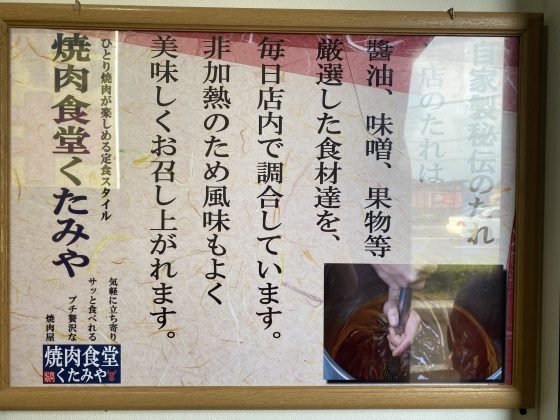 自家製秘伝のたれ
店のたれは、
醤油、味噌、果物等
厳選した食材達を、
毎日店内で調合しています。
非加熱のため風味もよく
美味しくお召し上がれます。
ひとり焼肉が楽しめる定食スタイル
焼肉食堂くたみや
気軽に立ち寄り
サッと食べれる
プチ贅沢な
焼肉屋
焼肉食堂
くたみや